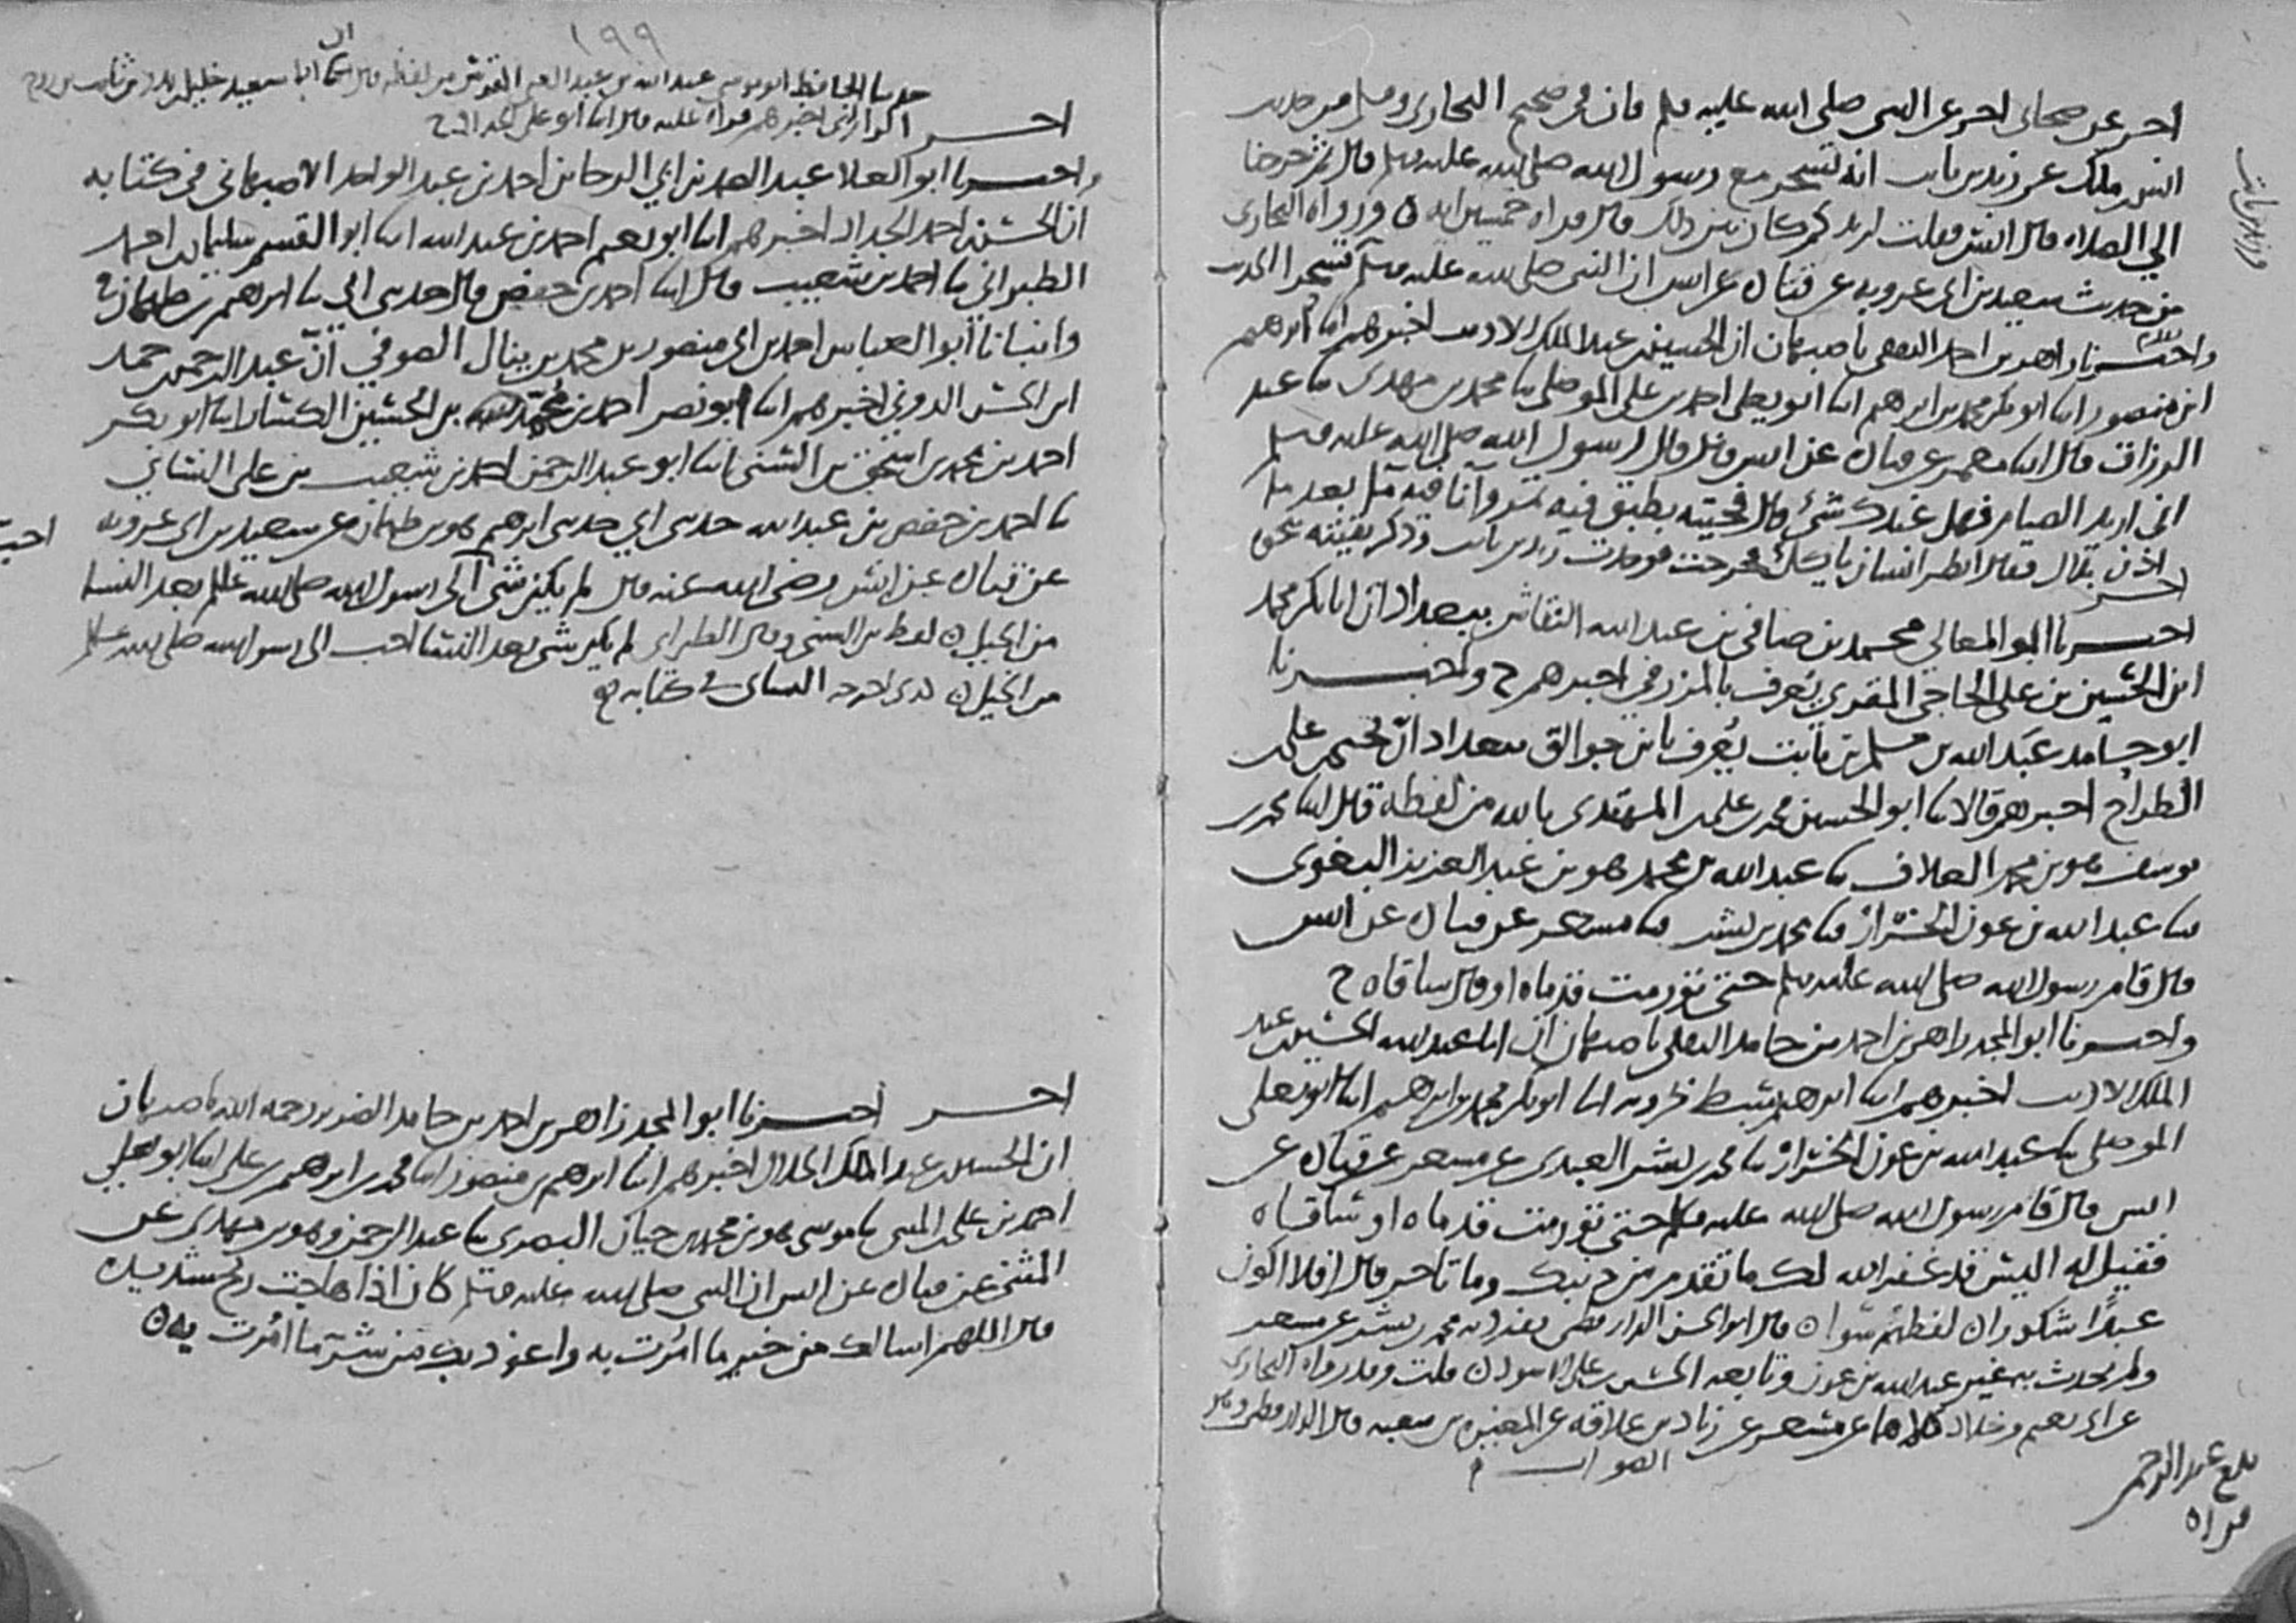 احر عن صحابي احر عن النبي صلى الله عليه وسلم فان في صحيح البخاري ومسلم من حديث
انس بن ملك عن زيد بن ثابت انه تسحر مع رسول الله صلى الله عليه وسلم قال ثم خرجنا
الي الصلاه قال انس فقلت لزيد كم كان بين ذلك قال قراه خمسين ايه ورواه البخاري
من حديث سعيد بن ابي عروبه عن قتاده عن انس ان النبي صلى الله عليه وسلم تسحر الحديث
واخبرنا زاهر بن احمد الثقفي باصبهان ان الحسين بن عبد الملك الاديب اخبرهم ابنا ابرهيم
ابن منصور ابنا ابو بكر محمد بن ابرهيم ابنا ابو يعلى احمد بن علي الموصلي ثنا محمد بن مهدي ثنا عبد
الرزاق قال ابنا معمر عن قتاده عن انس قال قال رسول الله صلى الله عليه وسلم
اني اريد الصيام فهل عندك شي قال فجيته بطبق فيه تمر وآنا فيه مآ بعد ما
اذن بلال فقال انظر انسان ياكل فخرجت فوجدت زيد بن ثابت وذكر بقيته نحوه
احبر
اخبرنا ابو المعالي محمد بن صافي بن عبد الله النقاش ببغداد ان ابا بكر محمد
ابن الحسين بن علي الحاجي المقري يعرف بالمزرفي اخبرهم ح واخبرنا
ابو حامد عبد الله بن مسلم بن ثابت يعرف بابن جوالق ببغداد ان يحيى بن علي
الطراح اخبرهم قالا ثنا ابو الحسين محمد بن علي بن المهتدي بالله من لفظه قال ابنا محمد بن
يوسف هو بن محمد العلاف ثنا عبد الله بن محمد هو بن عبد العزيز البغوي
ثنا عبد الله بن عون الخراز ثنا محمد بن بشر ثنا مسعر عن قتاده عن انس
قال قام رسول الله صلى الله عليه وسلم حتى تورمت قدماه او قال ساقاه ح
واخبرنا ابو المجد زاهر بن احمد بن حامد الثقفي باصبهان ان ابا عبد الله الحسين بن عبد
الملك الاديب اخبرهم ابنا ابرهيم سبط بحرويه ابنا ابو بكر محمد بن ابرهيم ابنا ابو يعلى
الموصلي ثنا عبد الله بن عون الخراز ثنا محمد بن بشر العبدي عن مسعر عن قتاده عن
انس قال قام رسول الله صلى الله عليه وسلم حتى تورمت قدماه او ساقاه
فقيل له اليس قد غفر الله لك ما تقدم من ذنبك وما تاخر قال افلا اكون
عبدا شكورا لفظهم سوا قال ابو الحسن الدارقطني تفرد به محمد بن بشر عن مسعر
ولم يحدث به غير عبد الله بن عون وتابعه الحسين بن علي الاسود قلت وقد رواه البخاري
عن ابي نعيم وخلاد كلاهما عن مسعر عن زياد بن علاقه عن المغيره بن شعبه قال الدارقطني وهو
الصواب
بلغ عبد الرحمن
قراه
١٩٩
حدثنا الحافظ ابو موسى عبد الله بن عبد الغني المقدسي من لفظه قال ابنا ابا سعيد خليل بن بدر بن ثابت بن روح
احبر الراراني اخبرهم قراه عليه قال ابنا ابو علي الحداد ح
واخبرنا ابو العلا عبد الصمد بن ابي الرجا بن احمد بن عبد الواحد الاصبهاني في كتابه
ان الحسن بن احمد الحداد اخبرهم ابنا ابو نعيم احمد بن عبد الله ابنا ابو القسم سليمان بن احمد
الطبراني ثنا احمد بن شعيب قال ابنا احمد بن حفص قال حدثني ابي ثنا ابرهيم بن طهمان ح
وانبانا ابو العباس احمد بن ابي منصور بن محمد بن ينال الصوفي ان عبد الرحمن بن حمد
ابن الحسن الدوني اخبرهم ابنا ابو نصر احمد بن محمد بن الحسين الكسار ابنا ابو بكر
احمد بن محمد بن اسحق بن السني ابنا ابو عبد الرحمن احمد بن شعيب بن علي النسائي
ثنا احمد بن حفص بن عبد الله حدثني ابي حدثني ابرهيم هو بن طهمان عن سعيد بن ابي عروبه
عن قتاده عن انس رضي الله عنه قال لم يكن شي الى رسول الله صلى الله عليه وسلم بعد النسا
من الخيل لفظ بن السني وقال الطبراني لم يكن شي بعد النسا احب الى رسول الله صلى الله عليه وسلم
من الخيل كذي اخرجه النسائي في كتابه
احبر اخبرنا ابو المجد زاهر بن احمد بن حامد الضرير رحمه الله باصبهان
ان الحسين بن عبد الملك الخلال اخبرهم ابنا ابرهيم بن منصور ابنا محمد بن ابرهيم بن علي ابنا ابو يعلي
احمد بن علي بن المثنى ثنا موسى هو بن محمد بن حيان البصري ثنا عبد الرحمن وهو بن مهدي عن
المثنى عن قتاده عن انس ان النبي صلى الله عليه وسلم كان اذا هاجت ريح شديده
قال اللهم اسالك من خير ما امرت به واعوذ بك من شر ما امرت به